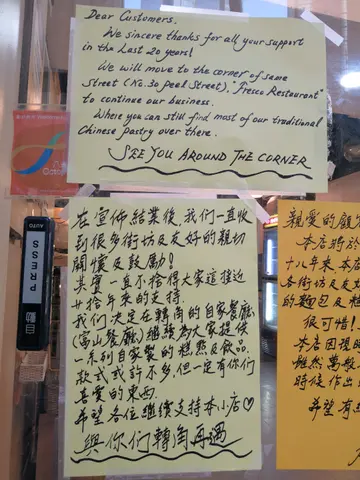 Dear Customers,
We sincere thanks for all your support
in the last 20 years!
We will move to the corner of same
Street (No. 30 Peel Street), "Fresco Restaurant"
to continue our business.
Where you can still find most of our traditional
Chinese pastry over there.
SEE YOU AROUND THE CORNER
AUTO
PRESS
自動
在宣佈結業後,我们一直收
到很多街坊及友好的親切
關懷及鼓勵!
其實一直不捨得大家這接近
廿拾年來的支持.
我们決定在轉角的自家餐廳,
(富山餐廳)繼續為大家提供
一系列自家製的糕點及飲品.
款式或許不多但一定有你们
喜愛的東西.
希望各位繼續支持本小店♡
與你们轉角再遇
親愛的顧
本店將於
十八年來,本店
各街坊及友好
的麵包及糕
很可惜!
本店因現時
雖然萬般
時候作出
希望有緣